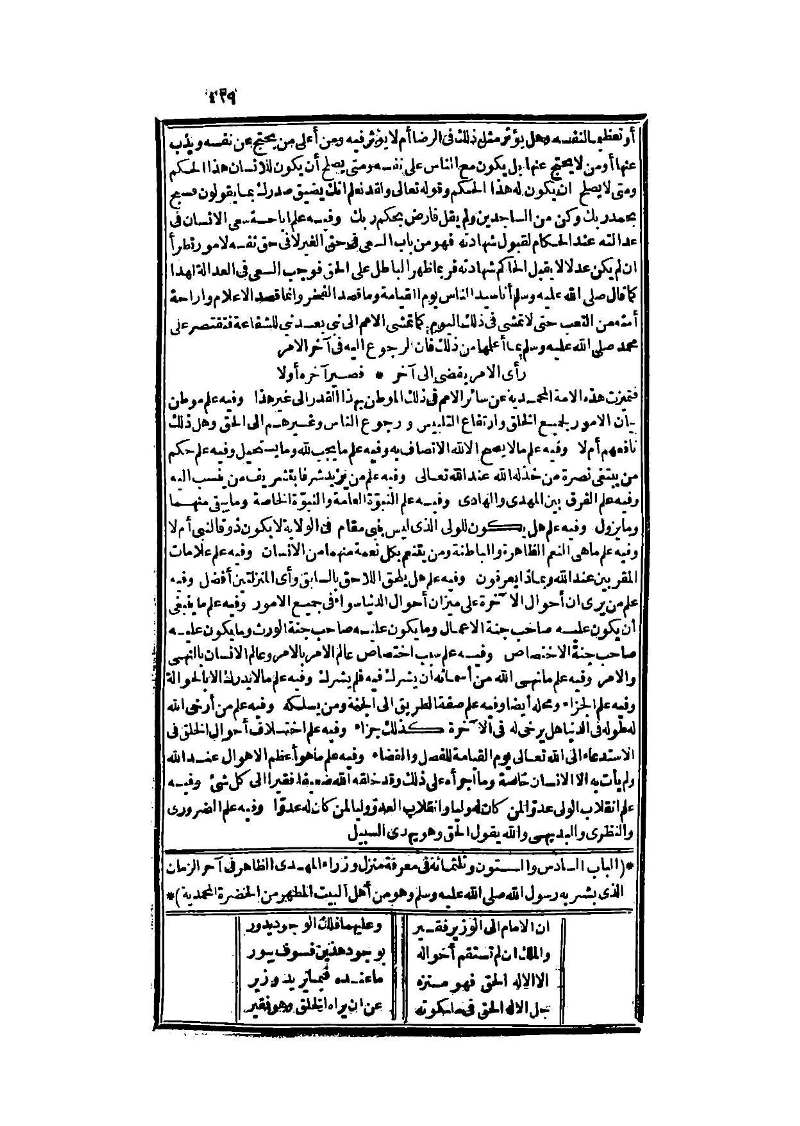 ٤٢٩
أو تعظيما لنفسه وهل يؤثر مثل ذلك فى الرضا أم لا يؤثر فيه ومن أعلى من يحتج عن نفسه ويذب
عنها أو من لا يحتج عنها بل يكون مع الناس على نفسه ومتى يصلح أن يكون للانسان هذا الحكم
ومتى لا يصلح ان يكون له هذا الحكم وقوله تعالى ولقد نعلم انك يضيق صدرك بما يقولون فسبح
بحمد ربك وكن من الساجدين ولم يقل فارض بحكم ربك وفيه علم اباحة سعى الانسان فى
عدالته عند الحكام لقبول شهادته فهو من باب السعى فى حق الغير لا فى حق نفسه لامور تطرأ
ان لم يكن عدلا لا يقبل الحاكم شهادته فربما ظهر الباطل على الحق فوجب السعى فى العدالة لهذا
كما قال صلى الله عليه وسلم أنا سيد الناس يوم القيامة وما قصد الفخر وانما قصد الاعلام واراحة
أمته من التعب حتى لا تمشى فى ذلك اليوم كما تمشى الامم الى نبى بعد نبى للشفاعة فتقتصر على
محمد صلى الله عليه وسلم بما أعلمها من ذلك فان الرجوع اليه فى آخر الامر
رأى الامر يفضى الى آخر * فصير آخره أولا
فتميزت هذه الامة المحمدية عن سائر الامم فى ذلك الموطن بهذا القدر الى غير هذا وفيه علم موطن
بيان الامور لجميع الخلق وارتفاع التلبيس ورجوع الناس وغيرهم الى الحق وهل ذلك
نافعهم أم لا وفيه علم ما لا يصح الا لله الاتصاف به وفيه علم ما يجب لله وما يستحيل وفيه علم حكم
من يبتغى نصرة من خذله الله عند الله تعالى وفيه علم من يزيد شرفا بتشريف من ينسب اليه
وفيه علم الفرق بين المهدى والهادى وفيه علم النبوّة العامة والنبوّة الخاصة وما يبقى منهما
وما يزول وفيه علم هل يكون للولى الذى ليس بنبى مقام فى الولاية لا يكون ذوقا لنبى أم لا
وفيه علم ماهى النعم الظاهرة والباطنة ومن يتنعم بكل نعمة منهما من الانسان وفيه علم علامات
المقربين عند الله وبماذا يعرفون وفيه علم هل يلحق اللاحق بالسابق وأى المنزلتين أفضل وفيه
علم من يرى ان أحوال الآخرة على ميزان أحوال الدنيا سواء فى جميع الامور وفيه علم ما ينبغى
أن يكون عليه صاحب جنة الاعمال وما يكون عليه صاحب جنة الورث وما يكون عليه
صاحب جنة الاختصاص وفيه علم سبب اختصاص عالم الامر بالامر وعالم الانسان بالنهى
والامر وفيه علم ما نهى الله من أسمائه أن يشرك فيه فلم يشرك وفيه علم ما لا يدرك الا بالحوالة
وفيه علم الجزاء ومحله أيضا وفيه علم صفة الطريق الى الجنة ومن يسلكه وفيه علم من أرخى الله
له طوله فى الدنيا هل يرخى له فى الآخرة كذلك جزاء وفيه علم اختلاف أحوال الخلق فى
الاستدعاء الى الله تعالى يوم القيامة للفصل والقضاء وفيه علم ما هو أعظم الاهوال عند الله
ولم يأت به الا الانسان خاصة وما أجرأه على ذلك وقد خلقه الله ضعيفا فقيرا الى كل شئ وفيه
علم انقلاب الولى عدوّا لمن كان له وليا وانقلاب العدو وليا لمن كان له عدوّا وفيه علم الضرورى
والنظرى والبديهى والله يقول الحق وهو يهدى السبيل
*(الباب السادس والستون وثلثمائة فى معرفة منزل وزراء المهدى الظاهر فى آخر الزمان
الذى بشر به رسول الله صلى الله عليه وسلم وهو من أهل البيت المطهر من الحضرة المحمدية)*
ان الامام الى الوزير فقير وعليهما فلك الوجود يدور
والملك ان لم تستقم أحواله بوجود هذين فسوف يبور
الا الاله الحق فهو منزه ما عنده فيما يريد وزير
جل الاله الحق فى ملكوته عن ان يراه الخلق وهو فقير